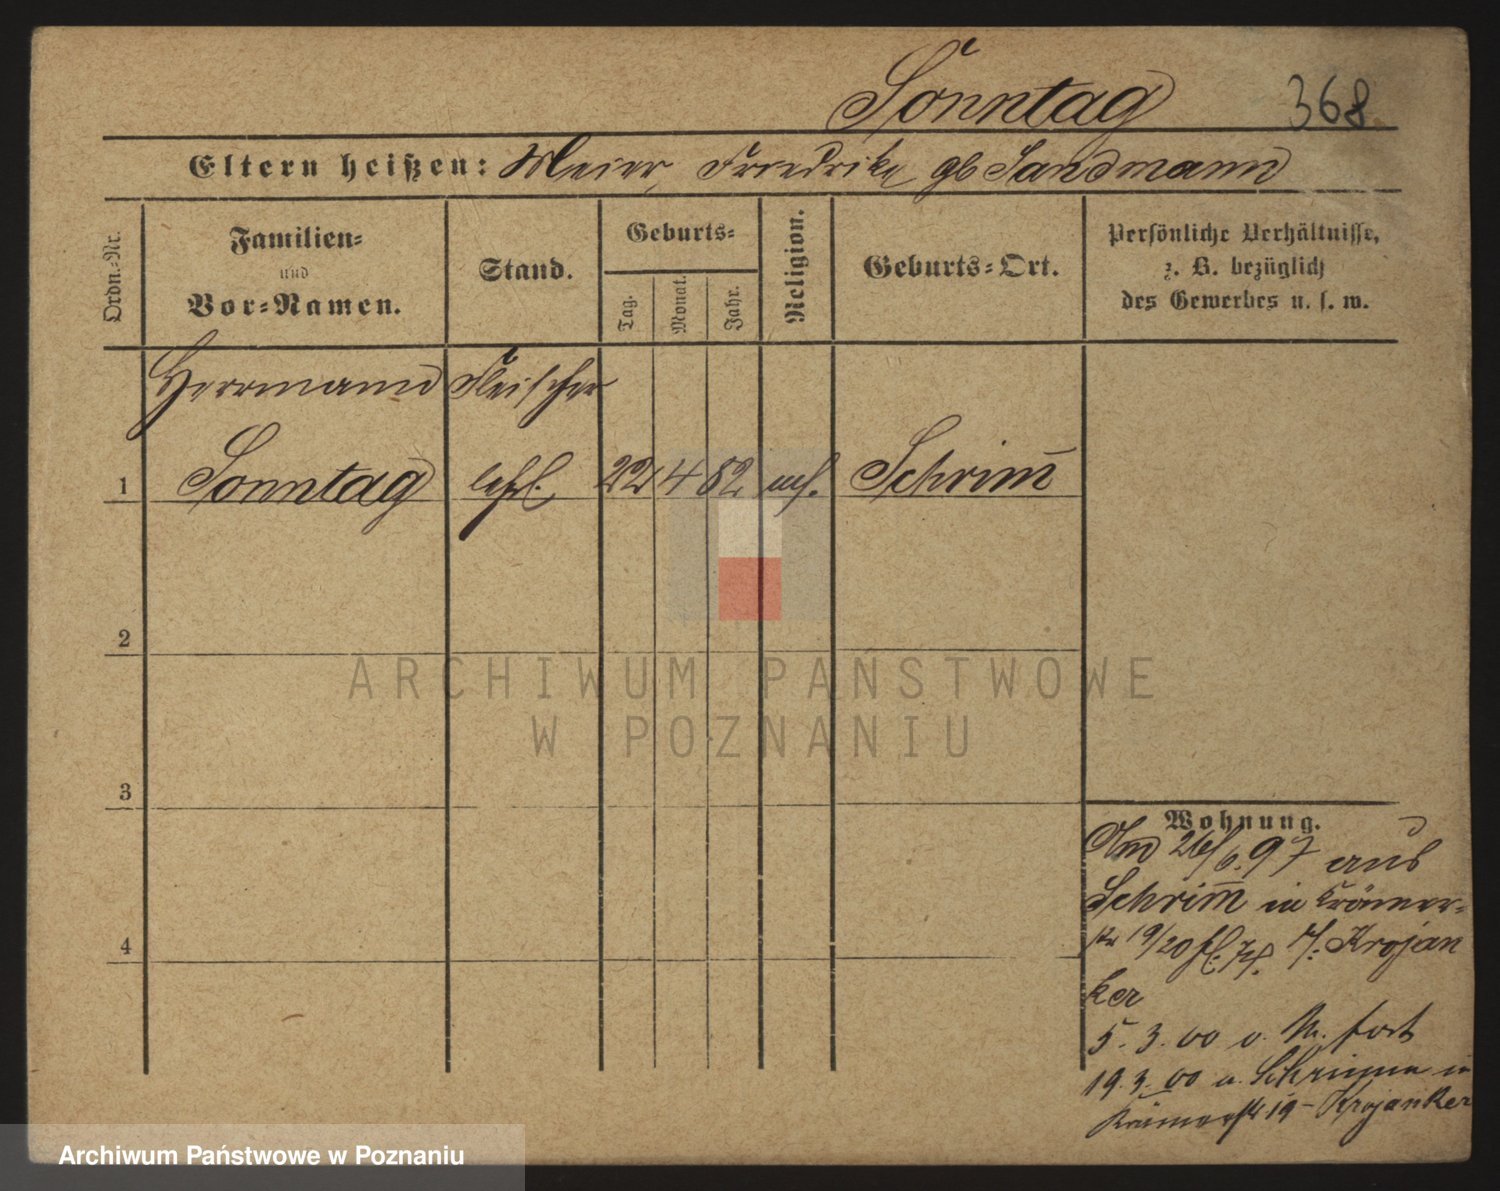 Sonntag 368
Eltern heißen: Meier, Friedrike gb Sandmann
Ordn.-Nr.
Familien-
und
Vor-Namen.
Stand.
Geburts-
Tag.
Monat.
Jahr.
Religion.
Geburts-Ort.
Persönliche Verhältnisse,
z. B. bezüglich
des Gewerbes u. s. w.
Herrmann Fleischer
1 Sonntag lehrl. 22 4 82 mos. Schrim̅
2
3
4
Wohnung.
Am 26/6.97 aus
Schrim̅ in Krämer-
str 19/20 Krojan
ker
5.3.00 o. M. fort
19.3.00 a. Schrimm in
Krämerstr 19 - Krojanker
ARCHIWUM PAŃSTWOWE
W POZNANIU
Archiwum Państwowe w Poznaniu